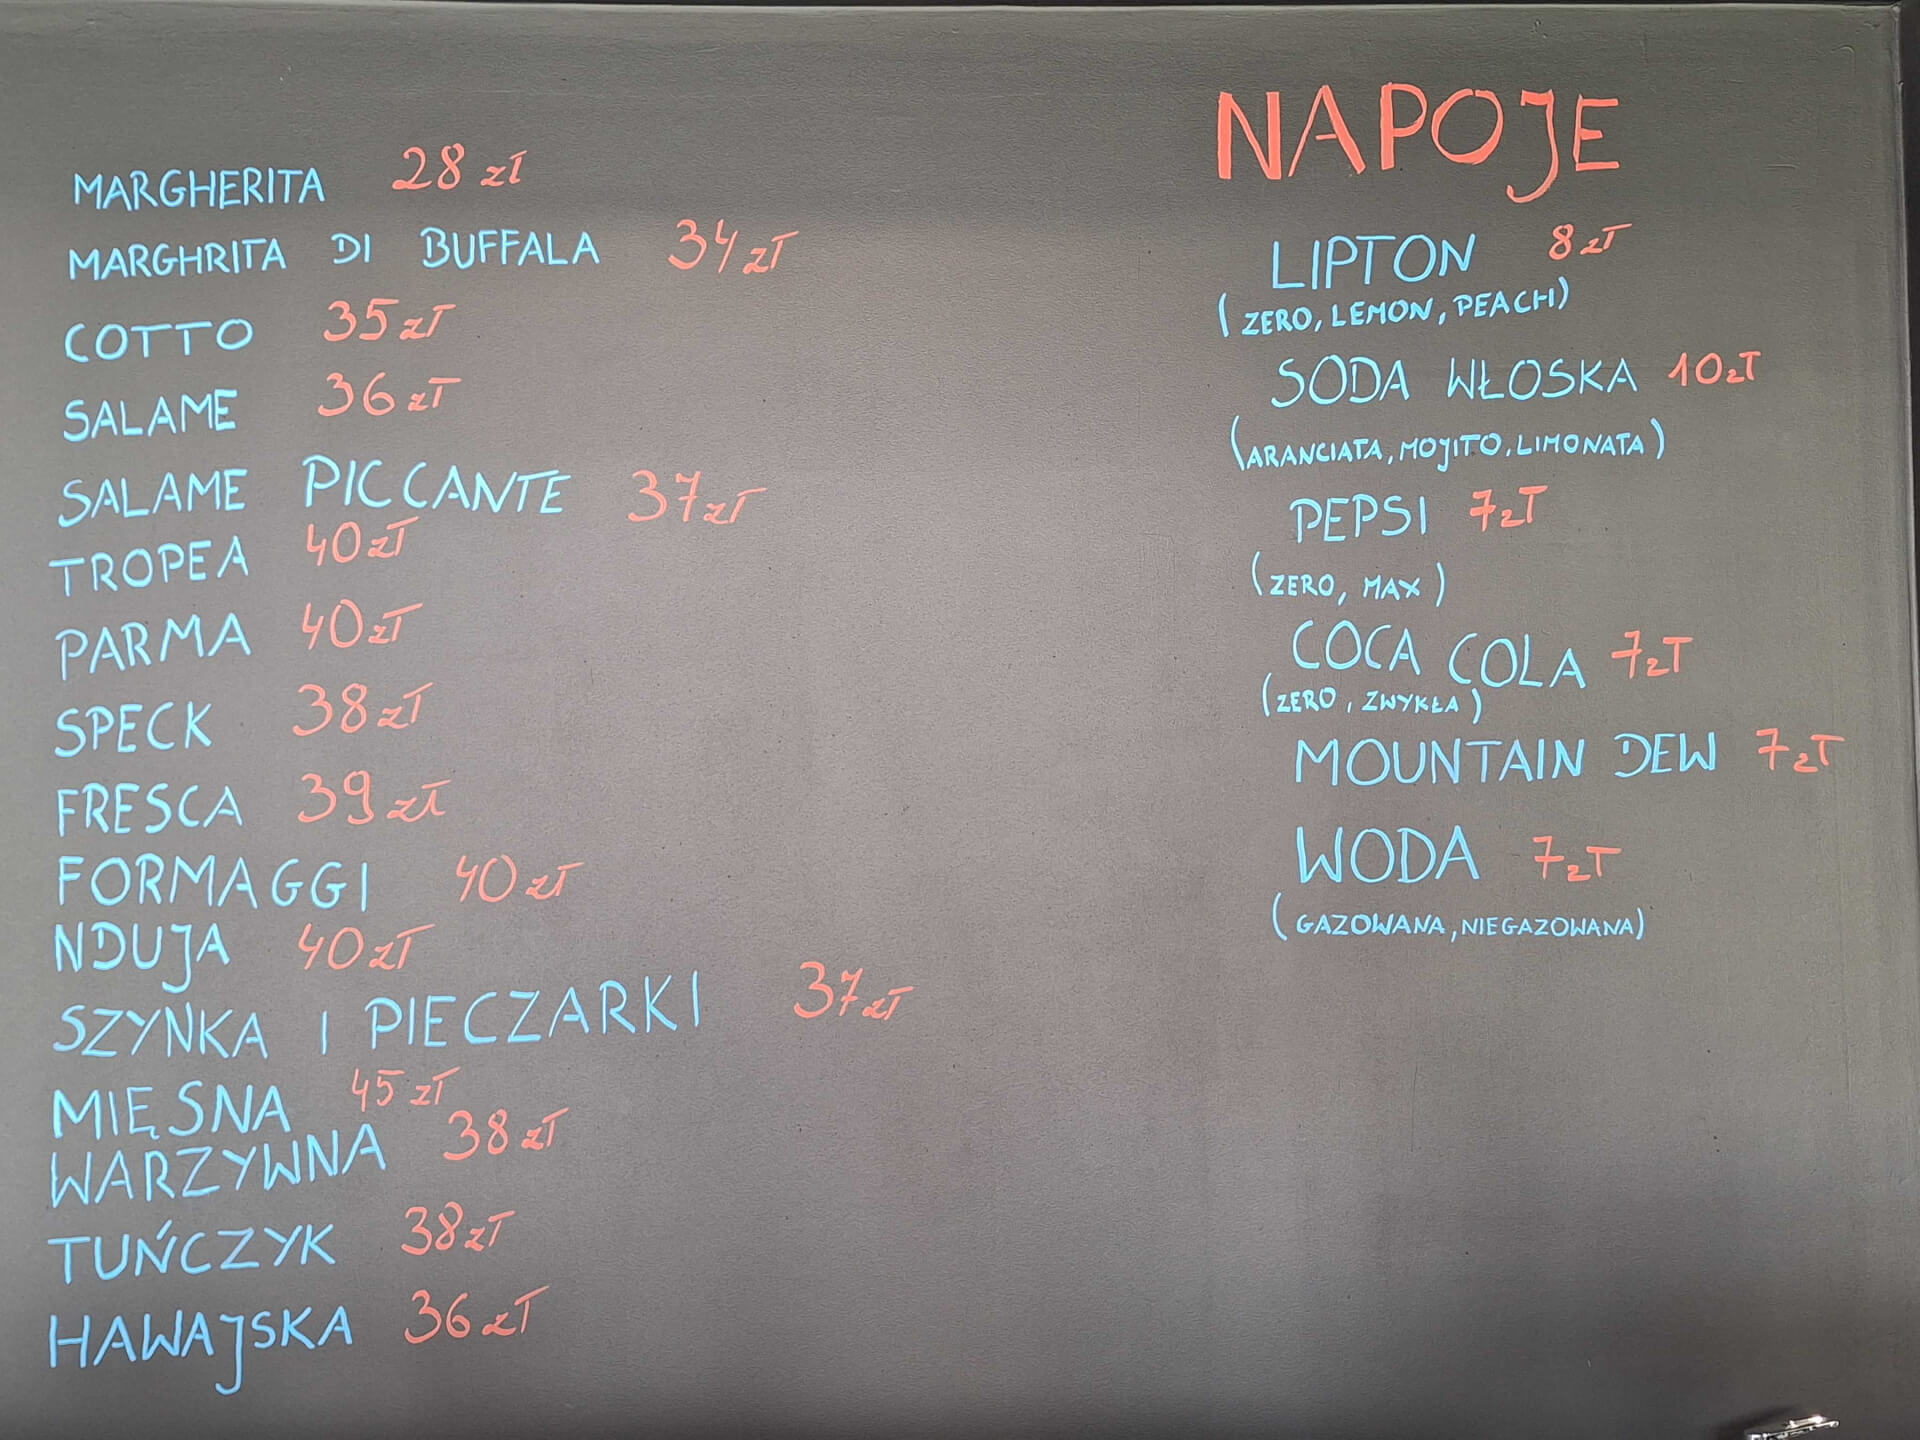 MARGHERITA 28 zł
MARGHRITA DI BUFFALA 34 zł
COTTO 35 zł
SALAME 36 zł
SALAME PICCANTE 37 zł
TROPEA 40 zł
PARMA 40 zł
SPECK 38 zł
FRESCA 39 zł
FORMAGGI 40 zł
NDUJA 40 zł
SZYNKA I PIECZARKI 37 zł
MIĘSNA 45 zł
WARZYWNA 38 zł
TUŃCZYK 38 zł
HAWAJSKA 36 zł
NAPOJE
LIPTON 8 zł
(ZERO, LEMON, PEACH)
SODA WŁOSKA 10 zł
(ARANCIATA, MOJITO, LIMONATA)
PEPSI 7 zł
(ZERO, MAX)
COCA COLA 7 zł
(ZERO, ZWYKŁA)
MOUNTAIN DEW 7 zł
WODA 7 zł
(GAZOWANA, NIEGAZOWANA)